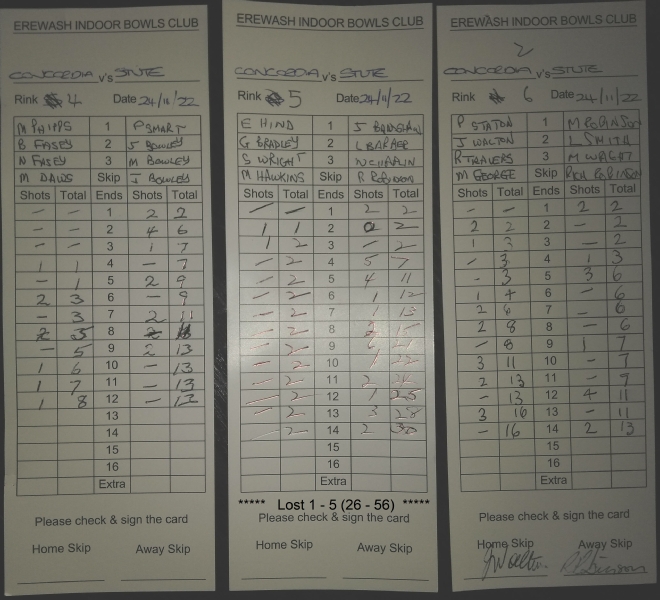 EREWASH INDOOR BOWLS CLUB
CONCORDIA v's STUTE
Rink 4 Date 24/11/22
M PHIPPS 1 P SMART
B FASEY 2 J BOWLEY
N FASEY 3 M BOWLEY
M DAWS Skip J BOWLEY
Shots Total Ends Shots Total
- - 1 2 2
- - 2 4 6
- - 3 1 7
1 1 4 - 7
- 1 5 2 9
2 3 6 - 9
- 3 7 2 11
2 5 8
- 5 9 2 13
1 6 10 - 13
1 7 11 - 13
1 8 12 - 13
13
14
15
16
Extra
Please check & sign the card
Home Skip Away Skip
EREWASH INDOOR BOWLS CLUB
CONCORDIA v's STUTE
Rink 5 Date 24/11/22
E HIND 1 J
G BRADLEY 2 L BARBER
S WRIGHT 3 N CHAPLIN
M HAWKINS Skip R ROBINSON
Shots Total Ends Shots Total
- - 1 2 2
1 1 2 2
1 2 3 - 2
- 2 4 5 7
- 2 5 4 11
- 2 6 1 12
- 2 7 1 13
- 2 8 2
- 2 9 21
- 2 10 1 22
- 2 11 2 24
- 2 12 1 25
- 2 13 3 28
- 2 14 2 30
15
16
Extra
***** Lost 1 - 5 (26 - 56) *****
Please check & sign the card
Home Skip Away Skip
EREWASH INDOOR BOWLS CLUB
2
CONCORDIA v's STUTE
Rink 6 Date 24/11/22
P STATON 1 M ROBINSON
J WALTON 2 L SMITH
R TRAVERS 3 M WRIGHT
M GEORGE Skip RICH ROBINSON
Shots Total Ends Shots Total
- - 1 2 2
2 2 2 - 2
1 3 3 - 2
- 3 4 1 3
- 3 5 3 6
1 4 6 - 6
2 6 7 - 6
2 8 8 - 6
- 8 9 1 7
3 11 10 - 7
2 13 11 - 9
- 13 12 4 11
3 16 13 - 11
- 16 14 2 13
15
16
Extra
Please check & sign the card
Home Skip Away Skip
J Walton